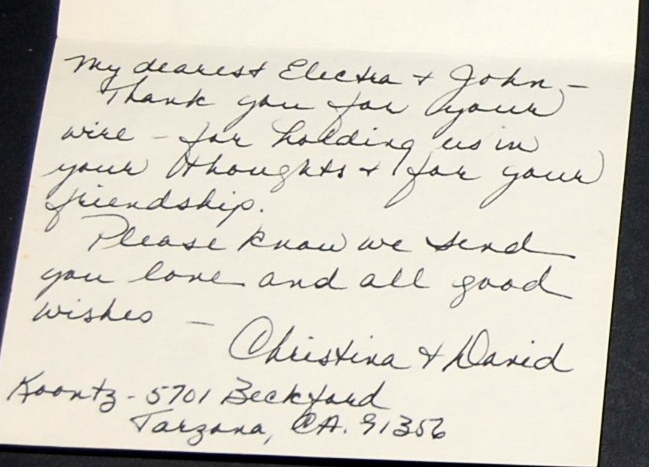 My dearest Electra + John –
Thank you for your
wire – for holding us in
your thoughts + for your
friendship.
Please know we send
you love and all good
wishes –
Christina + David
Koontz - 5701 Beckford
Tarzana, CA. 91356